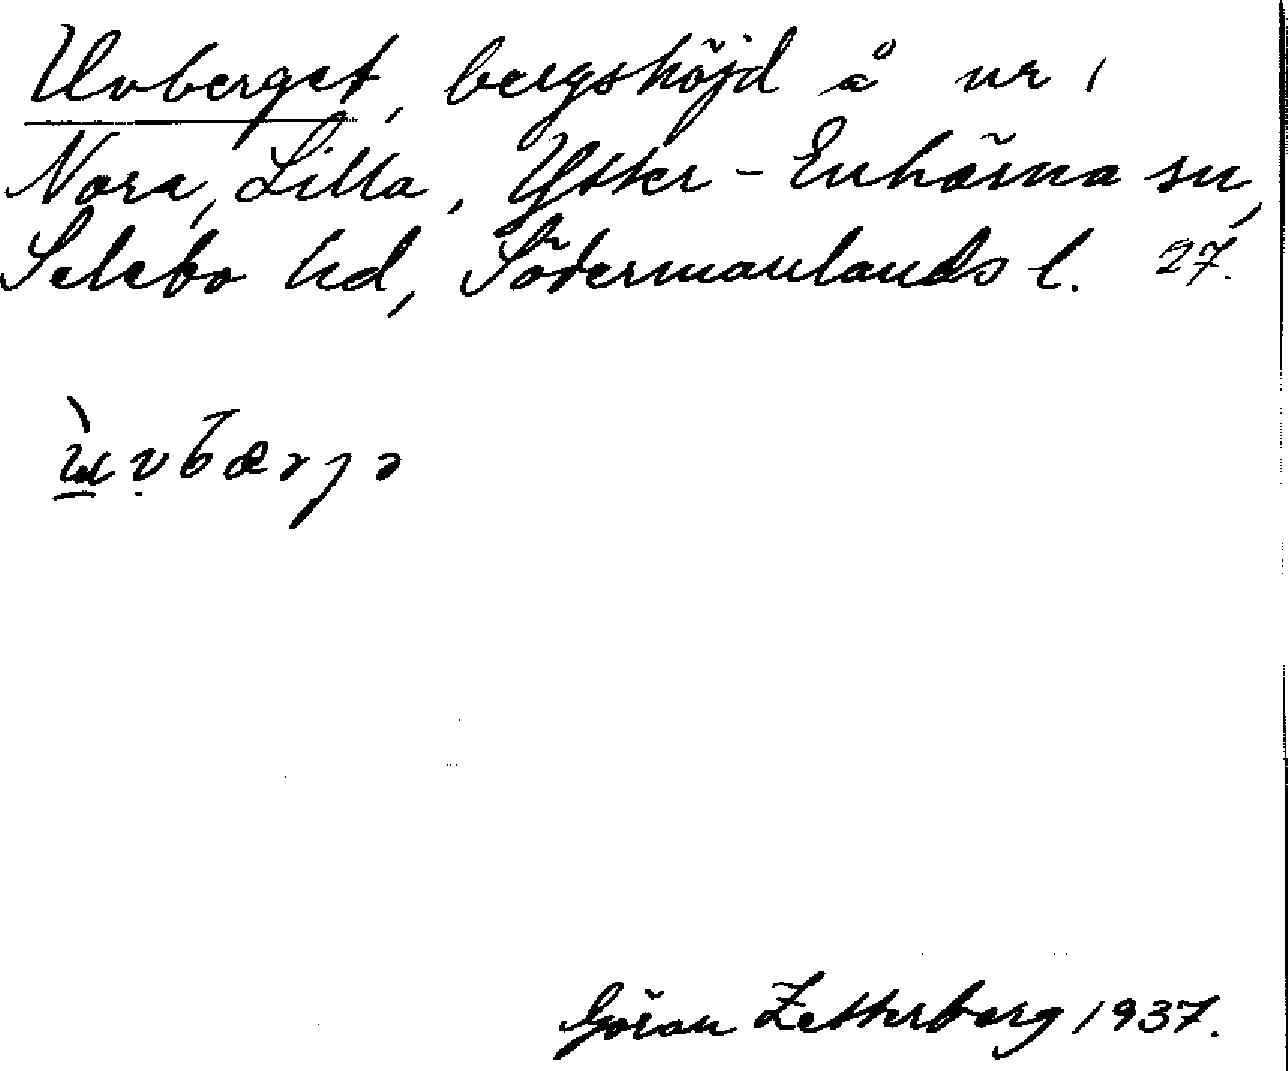 Uvberget, bergshöjd å nr 1
Nora, Lilla, Ytter-Enhörna sn,
Selebo hd, Södermanlands l. 27.
Göran Zetterberg 1937.